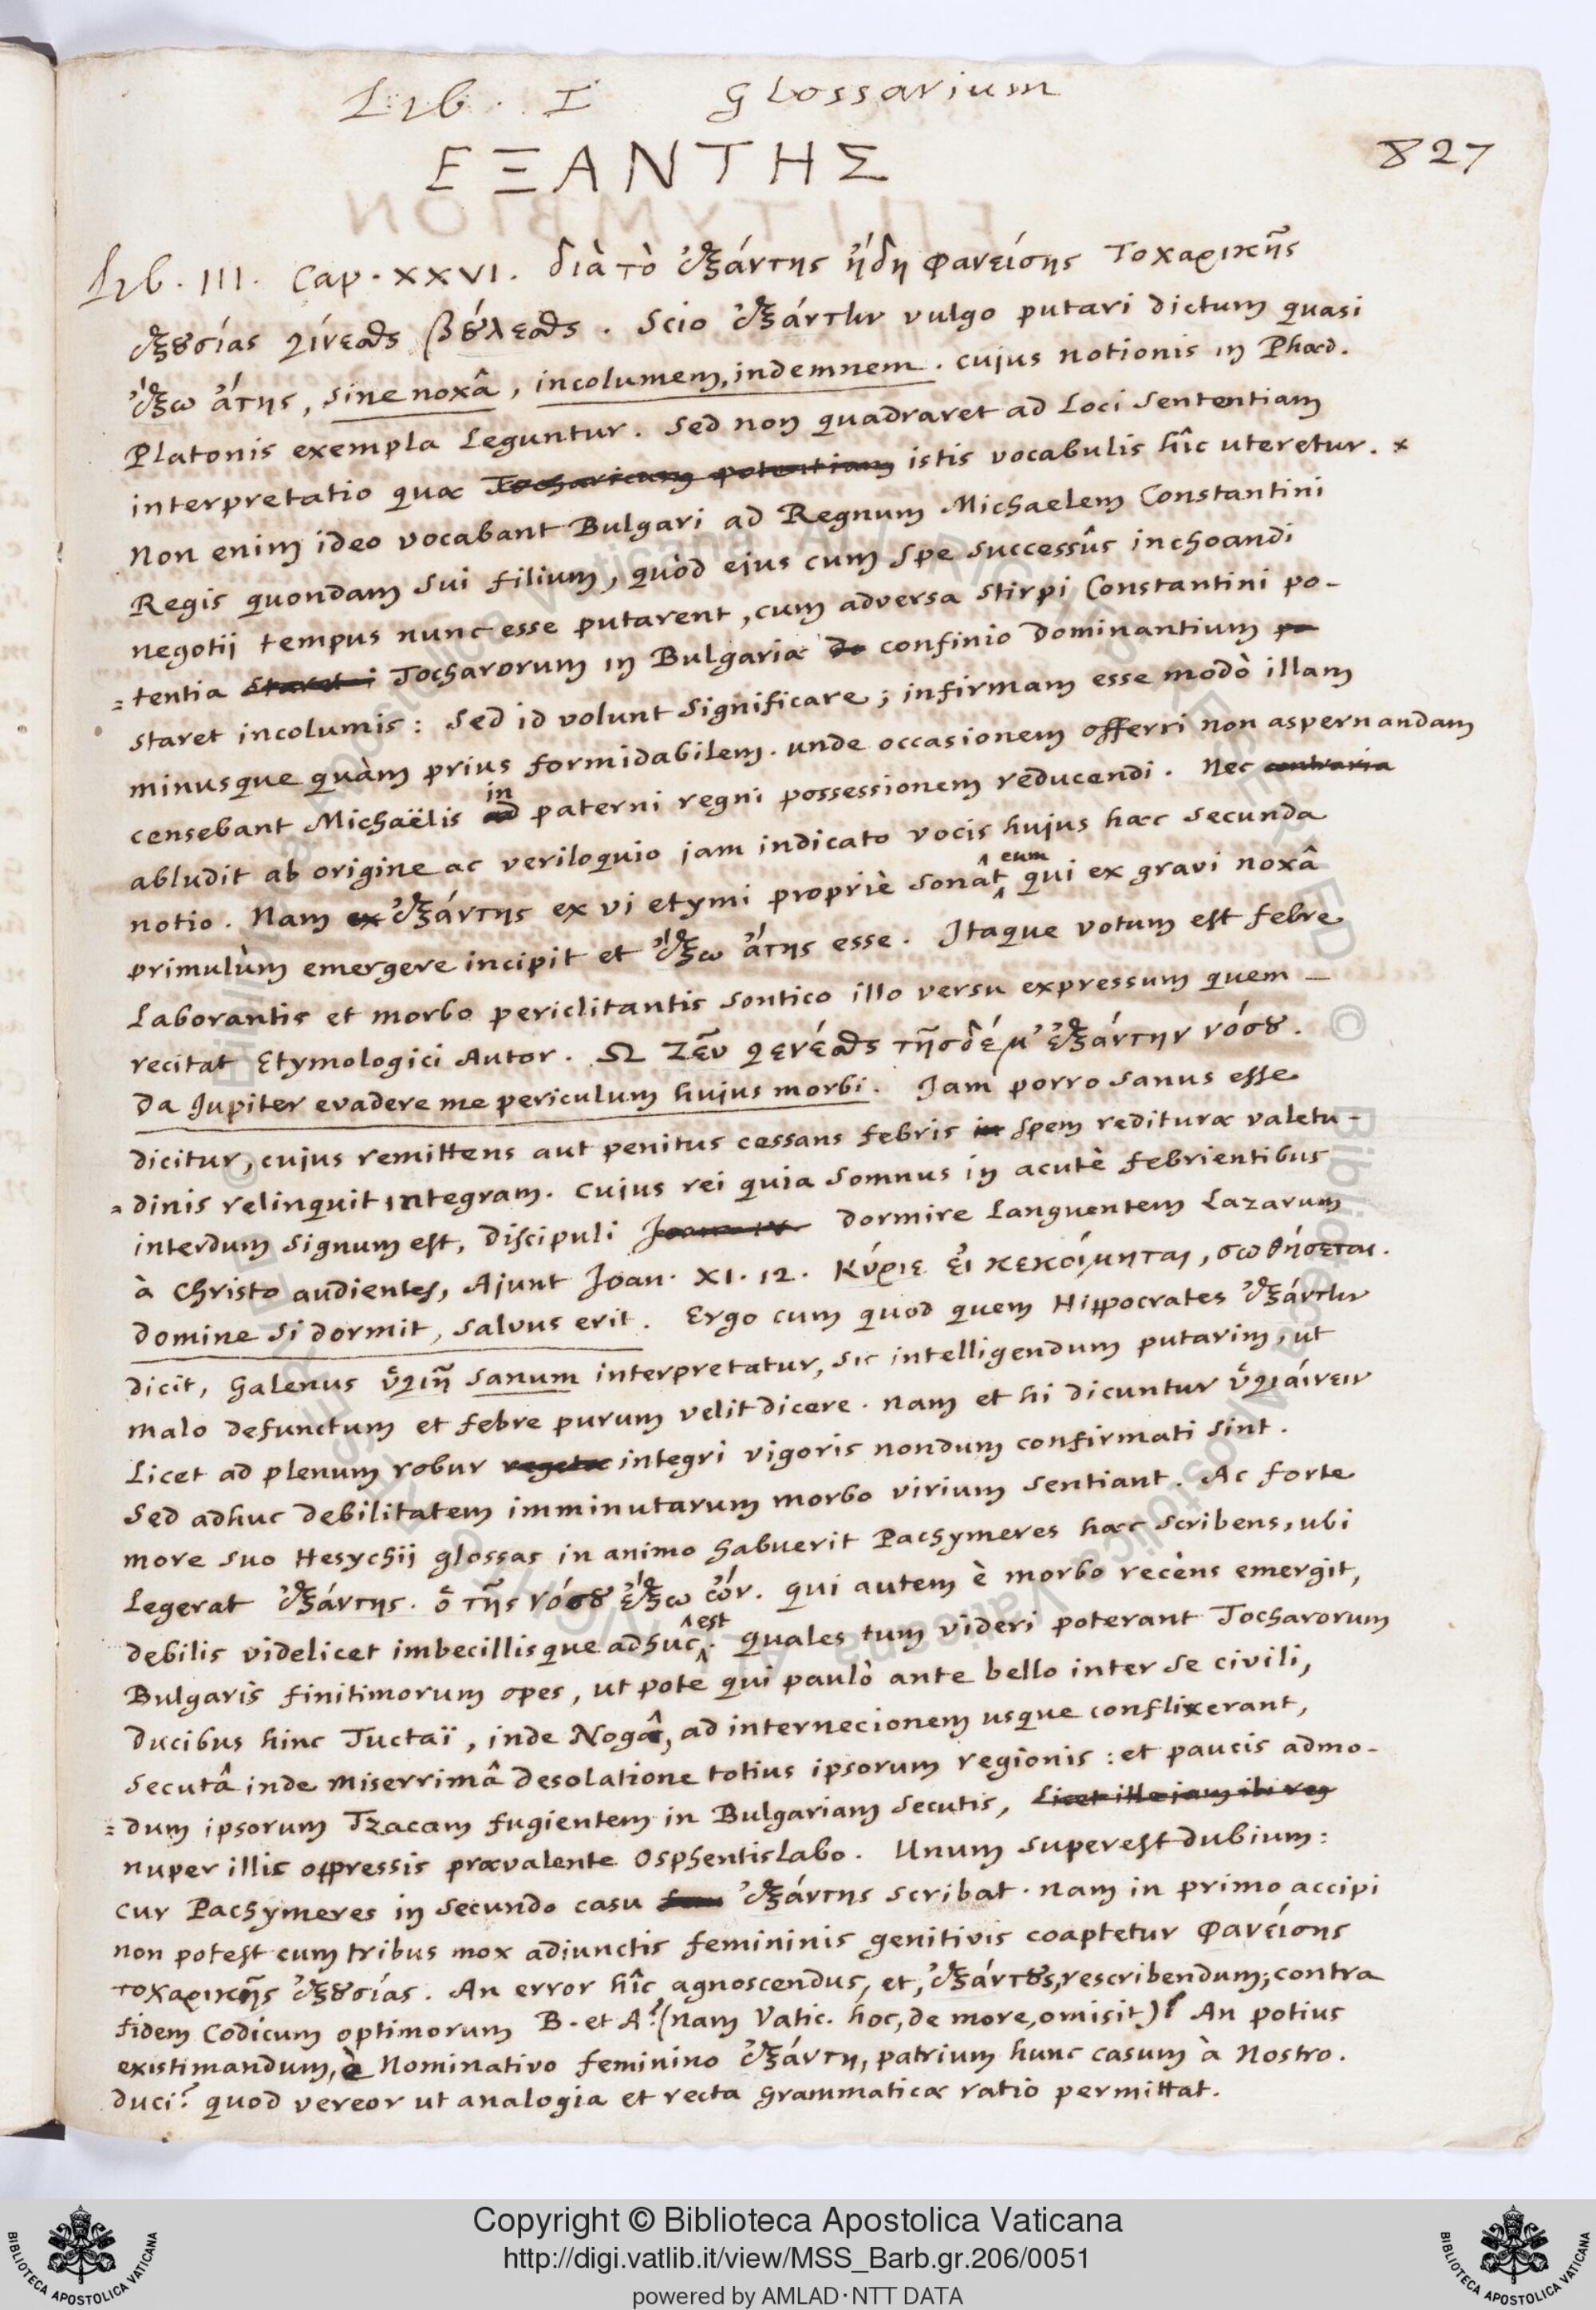 Lib. I Glossarium
827
ΕΞΑΝΤΗΣ
Lib. III. Cap. XXVI. διὰ τὸ ἐξάντης ἤδη φανείσης τοχαρικῆς
ἐξουσίας γίνεσθαι βούλεσθαι. Scio ἐξάντην vulgo putari dictum quasi
ἔξω ἄτης, sine noxâ, incolumem, indemnem. cujus notionis in Phæd.
Platonis exempla leguntur. Sed non quadraret ad loci sententiam
interpretatio quæ Tocharicam potentiam istis vocabulis hîc uteretur. x
Non enim ideo vocabant Bulgari ad Regnum Michaelem Constantini
Regis quondam sui filium, quòd ejus cum spe successûs inchoandi
negotij tempus nunc esse putarent, cum adversa stirpi Constantini po-
=tentia Tocharorum in Bulgariæ de confinio dominantium po
staret incolumis: sed id volunt significare; infirmam esse modò illam
minusque quàm prius formidabilem. unde occasionem offerri non aspernandam
censebant Michaëlis ad in paterni regni possessionem reducendi. Nec contraria
abludit ab origine ac veriloquio jam indicato vocis hujus hæc secunda
notio. Nam ex ἐξάντης ex vi etymi propriè sonat eum qui ex gravi noxâ
primulùm emergere incipit et ἔξω ἄτης esse. Itaque votum est febre
laborantis et morbo periclitantis sontico illo versu expressum quem
recitat Etymologici Autor. Ω Ζεῦ γενέσθαι τῆσδέ μ' ἐξάντην νόσου.
Da Jupiter evadere me periculum hujus morbi. Jam porro sanus esse
dicitur, cujus remittens aut penitus cessans febris in spem redituræ valetu-
=dinis relinquit integram. cujus rei quia somnus in acutè febrientibus
interdum signum est, discipuli dormire languentem Lazarum
à Christo audientes, Ajunt Joan. XI. 12. Κύριε εἰ κεκοίμηται, σωθήσεται.
Domine si dormit, salvus erit. Ergo cum quod quem Hippocrates ἐξάντην
dicit, Galenus ὑγιῆ sanum interpretatur, sic intelligendum putarim, ut
malo defunctum et febre purum velit dicere. nam et hi dicuntur ὑγιαίνειν
licet ad plenum robur vegetæ integri vigoris nondum confirmati sint.
Sed adhuc debilitatem imminutarum morbo virium sentiant. Ac forte
more suo Hesychij glossas in animo habuerit Pachymeres hæc scribens, ubi
legerat ἐξάντης. ὁ τῆς νόσου ἔξω ὤν. qui autem è morbo recèns emergit,
debilis videlicet imbecillisque adhuc est. quales tum videri poterant Tocharorum
Bulgaris finitimorum opes, utpote qui paulò ante bello inter se civili,
ducibus hinc Tuctaï, inde Nogâ, ad internecionem usque conflixerant,
secutâ inde miserrimâ desolatione totius ipsorum regionis: et paucis admo-
=dum ipsorum Tzacam fugientem in Bulgariam secutis, licet ille jam ibi reg
nuper illic oppressis prævalente Osphentislabo. Unum superest dubium:
cur Pachymeres in secundo casu ἐξάντης scribat. nam in primo accipi
non potest cum tribus mox adiunctis femininis genitivis coaptetur φανείσης
τοχαρικῆς ἐξουσίας. An error hîc agnoscendus, et, ἐξάντους, rescribendum; contra
fidem Codicum optimorum B. et A? (nam Vatic. hoc, de more, omisit)? An potius
existimandum, à Nominativo feminino ἐξάντη, patrium hunc casum à Nostro.
duci? quod vereor ut analogia et recta grammaticæ ratio permittat.
Copyright © Biblioteca Apostolica Vaticana
http://digi.vatlib.it/view/MSS_Barb.gr.206/0051
powered by AMLAD·NTT DATA
BIBLIOTECA APOSTOLICA VATICANA
BIBLIOTECA APOSTOLICA VATICANA